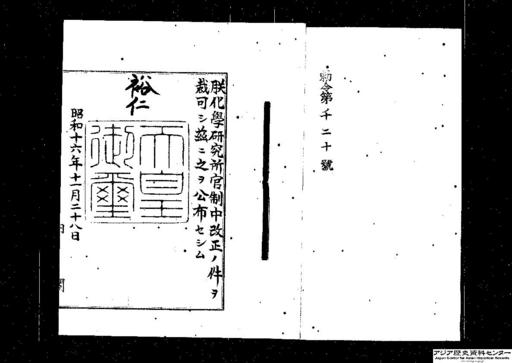 勅令第千二十號
朕化學研究所官制中改正ノ件ヲ
裁可シ茲ニ之ヲ公布セシム
裕仁
天皇御璽
昭和十六年十一月二十八日
アジア歴史資料センター
Japan Center for Asian Historical Records